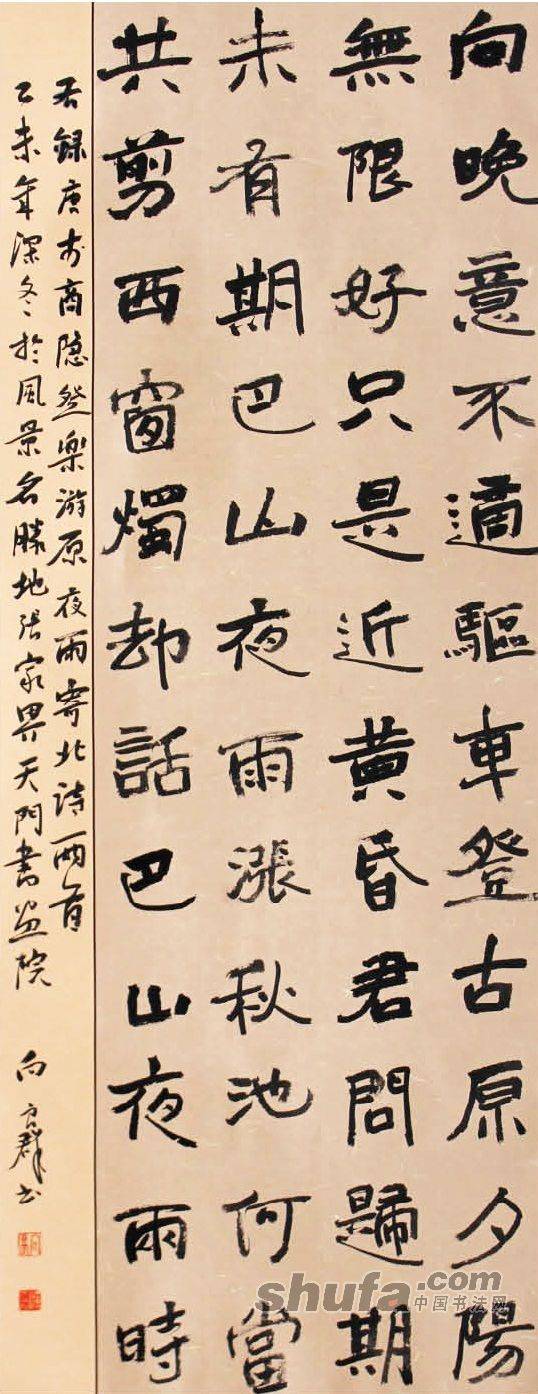 向晚意不適驅車登古原夕陽
無限好只是近黄昏君問歸期
未有期巴山夜雨漲秋池何當
共剪西窗燭却話巴山夜雨時
右録唐李商隐登樂游原夜雨寄北诗兩首
乙未年深冬於風景名勝地张家界天門書画院 向群书
shufa.com
中国书法网